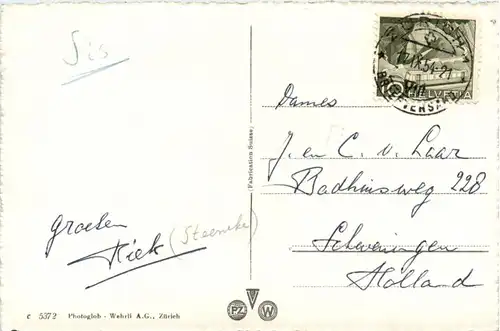 Sis
groeten
Riek (Steenske)
c 5372 Photoglob - Wehrli A.G., Zürich
(Fabrication Suisse)
HELVETIA
Dames
J. en C. v. Laar
Badhuisweg 228
Scheveningen
Holland
PZ W